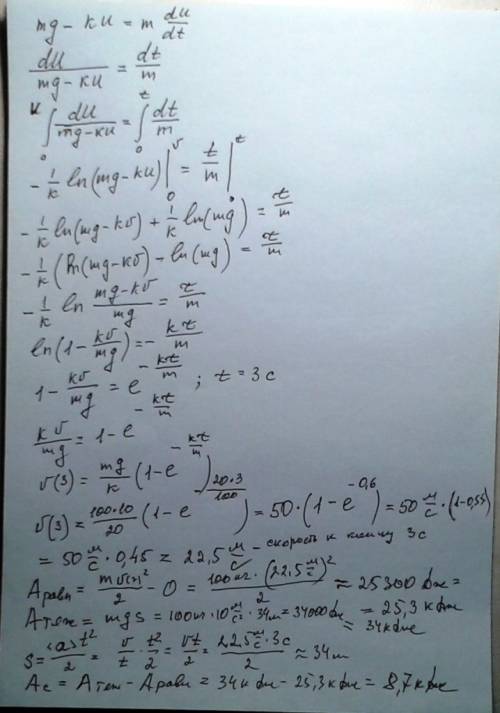 mg - ku = m du/dt
du/(mg-ku) = dt/m
∫₀ᵘ du/(mg-ku) = ∫₀ᵗ dt/m
- 1/k ln(mg-ku)|₀ᵛ = t/m|₀ᵗ
- 1/k ln(mg-kv) + 1/k ln(mg) = t/m
- 1/k (ln(mg-kv) - ln(mg)) = t/m
- 1/k ln (mg-kv)/mg = t/m
ln(1 - kv/mg) = - kt/m
1 - kv/mg = e^(-kt/m) ; t = 3c
kv/mg = 1 - e^(-kt/m)
v(3) = mg/k (1-e^(-kt/m))
v(3) = 100·10/20 (1-e^(-20·3/100)) = 50·(1-e^(-0,6)) = 50 м/с·(1-0,55)
= 50 м/с · 0,45 = 22,5 м/с - скорость к концу 3с
Aравн = mv(3)²/2 - 0 = 100кг·(22,5 м/с)²/2 ≈ 25300 Дж =
Aтяж = mgs = 100кг·10 м/с²·34м = 34000 Дж = 25,3 кДж
= 34 кДж
S = <a>t²/2 = v/t · t²/2 = vt/2 = 22,5 м/с·3с/2 ≈ 34м
Ac = Aтяж - Aравн = 34 кДж - 25,3 кДж = 8,7 кДж